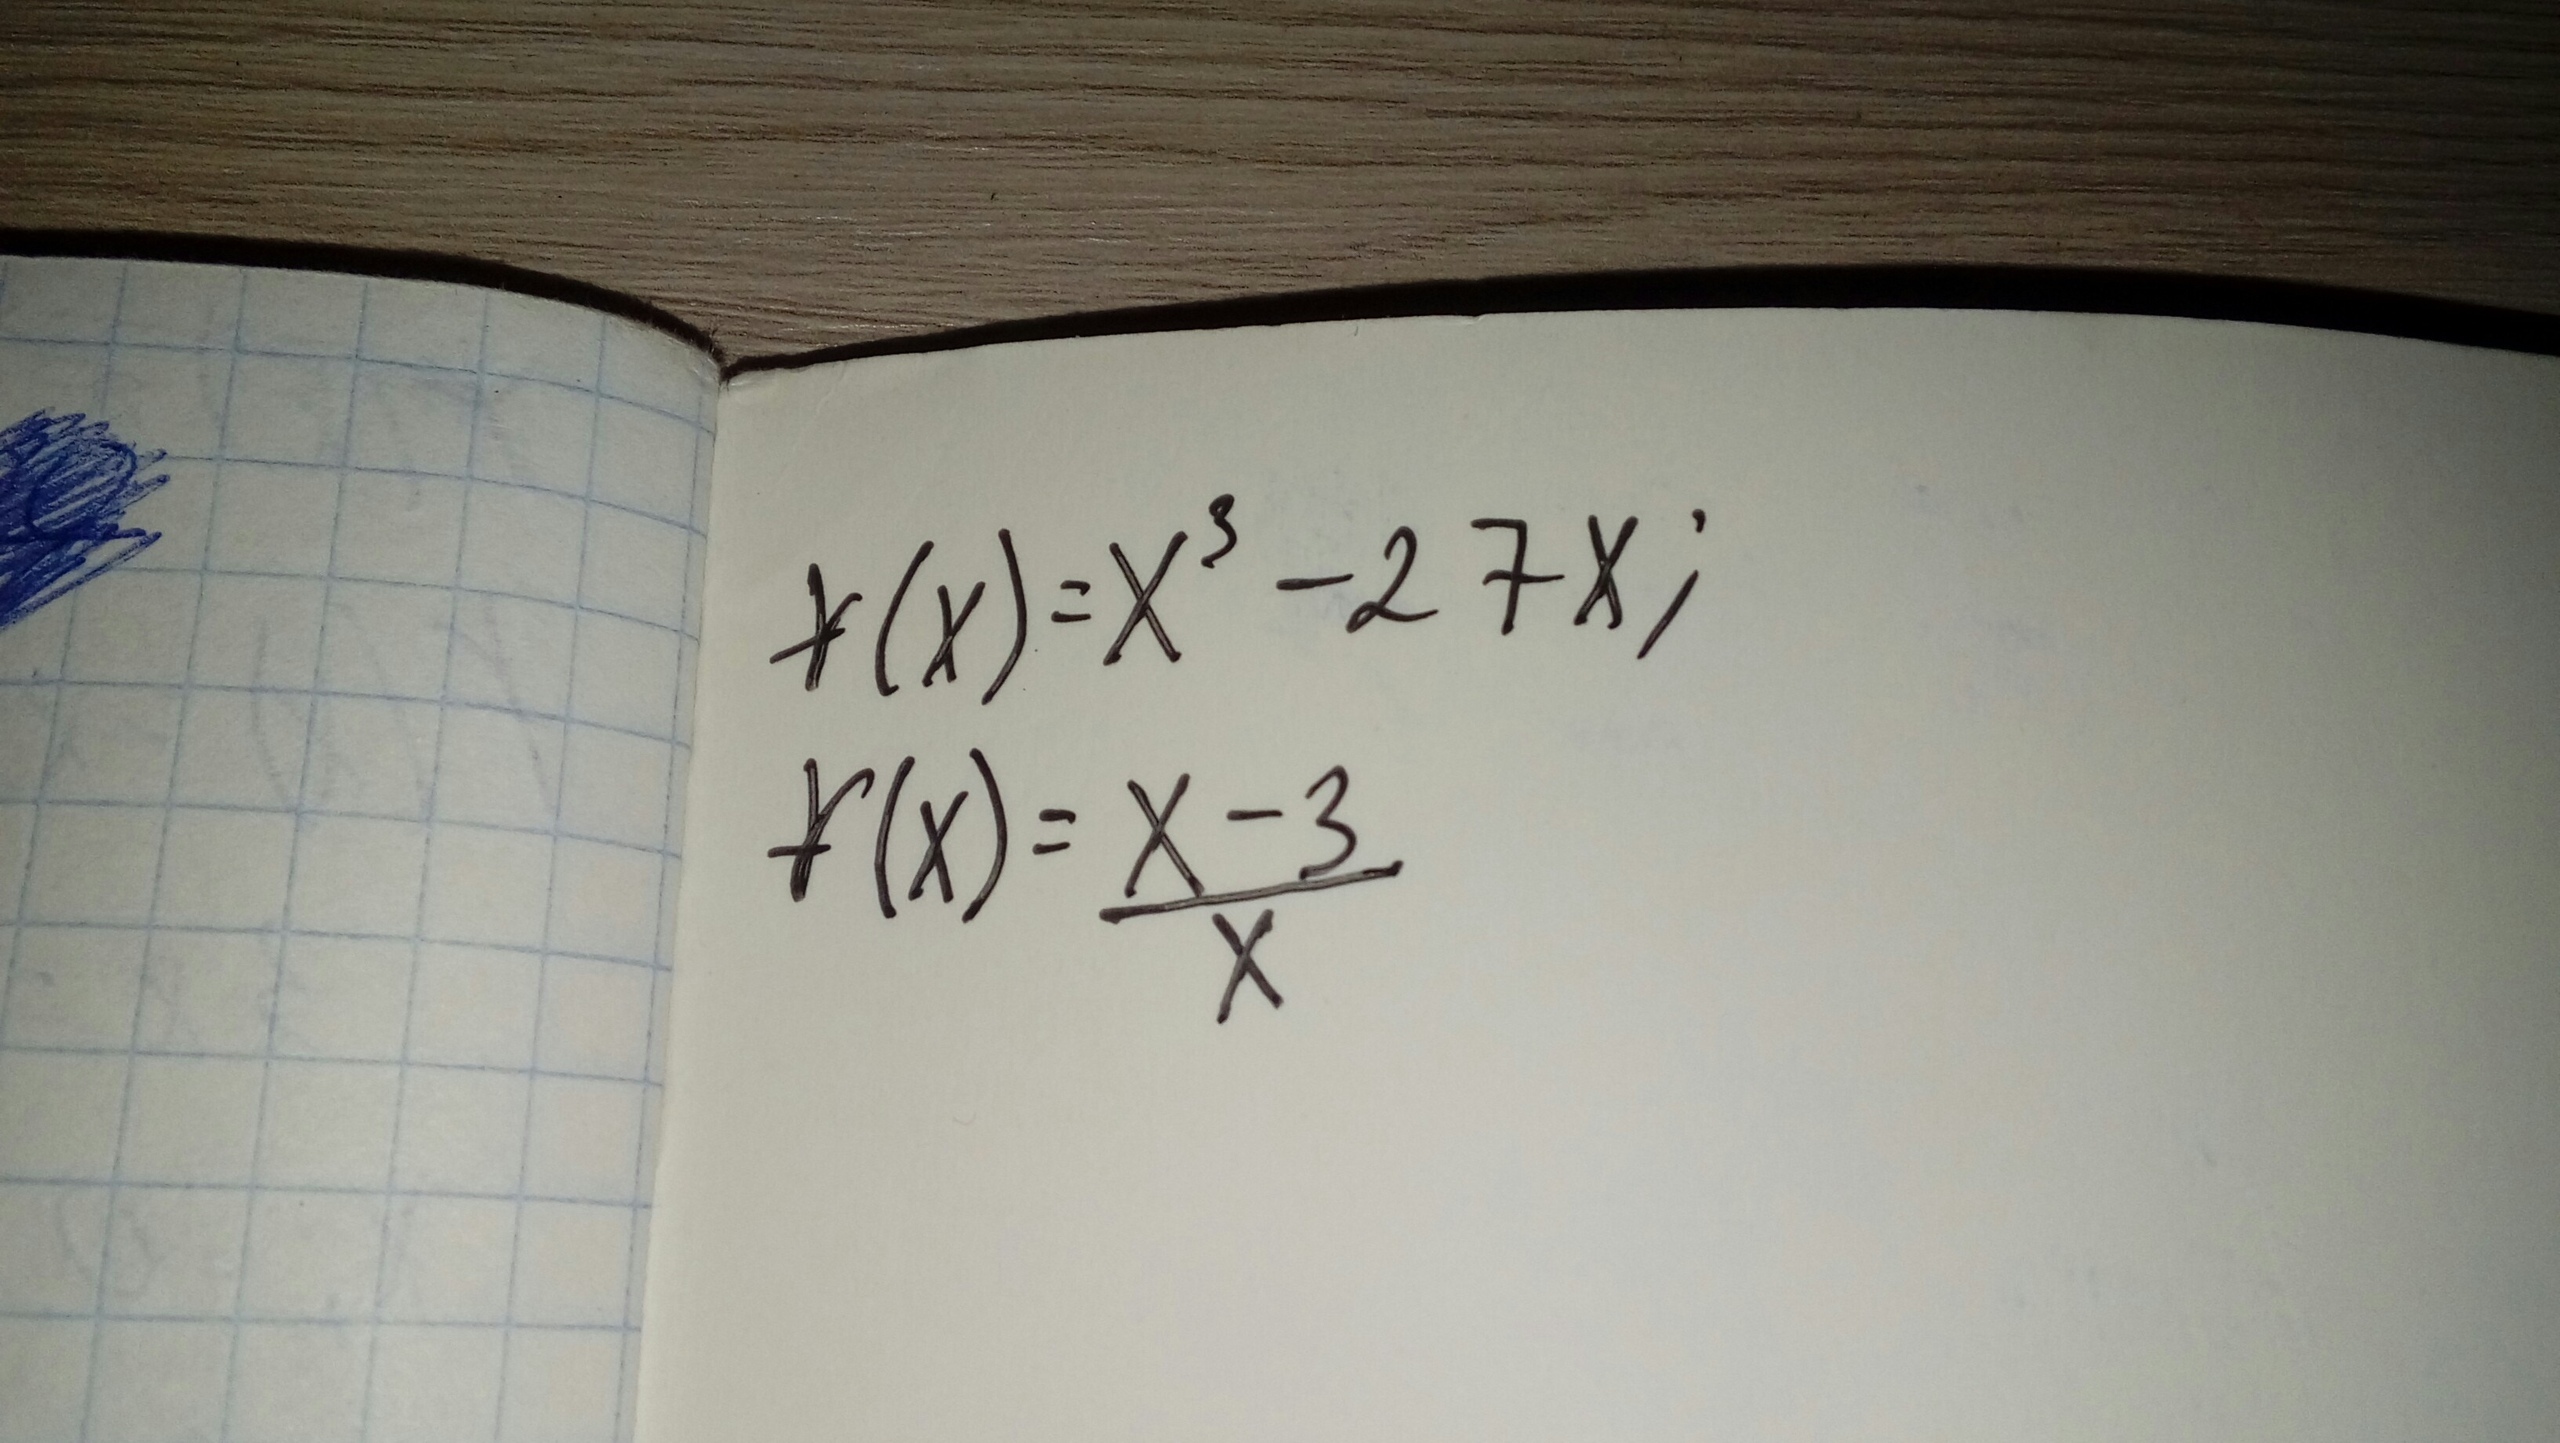 f(x)=x³-27x;
f(x)=\frac{x-3}{x}